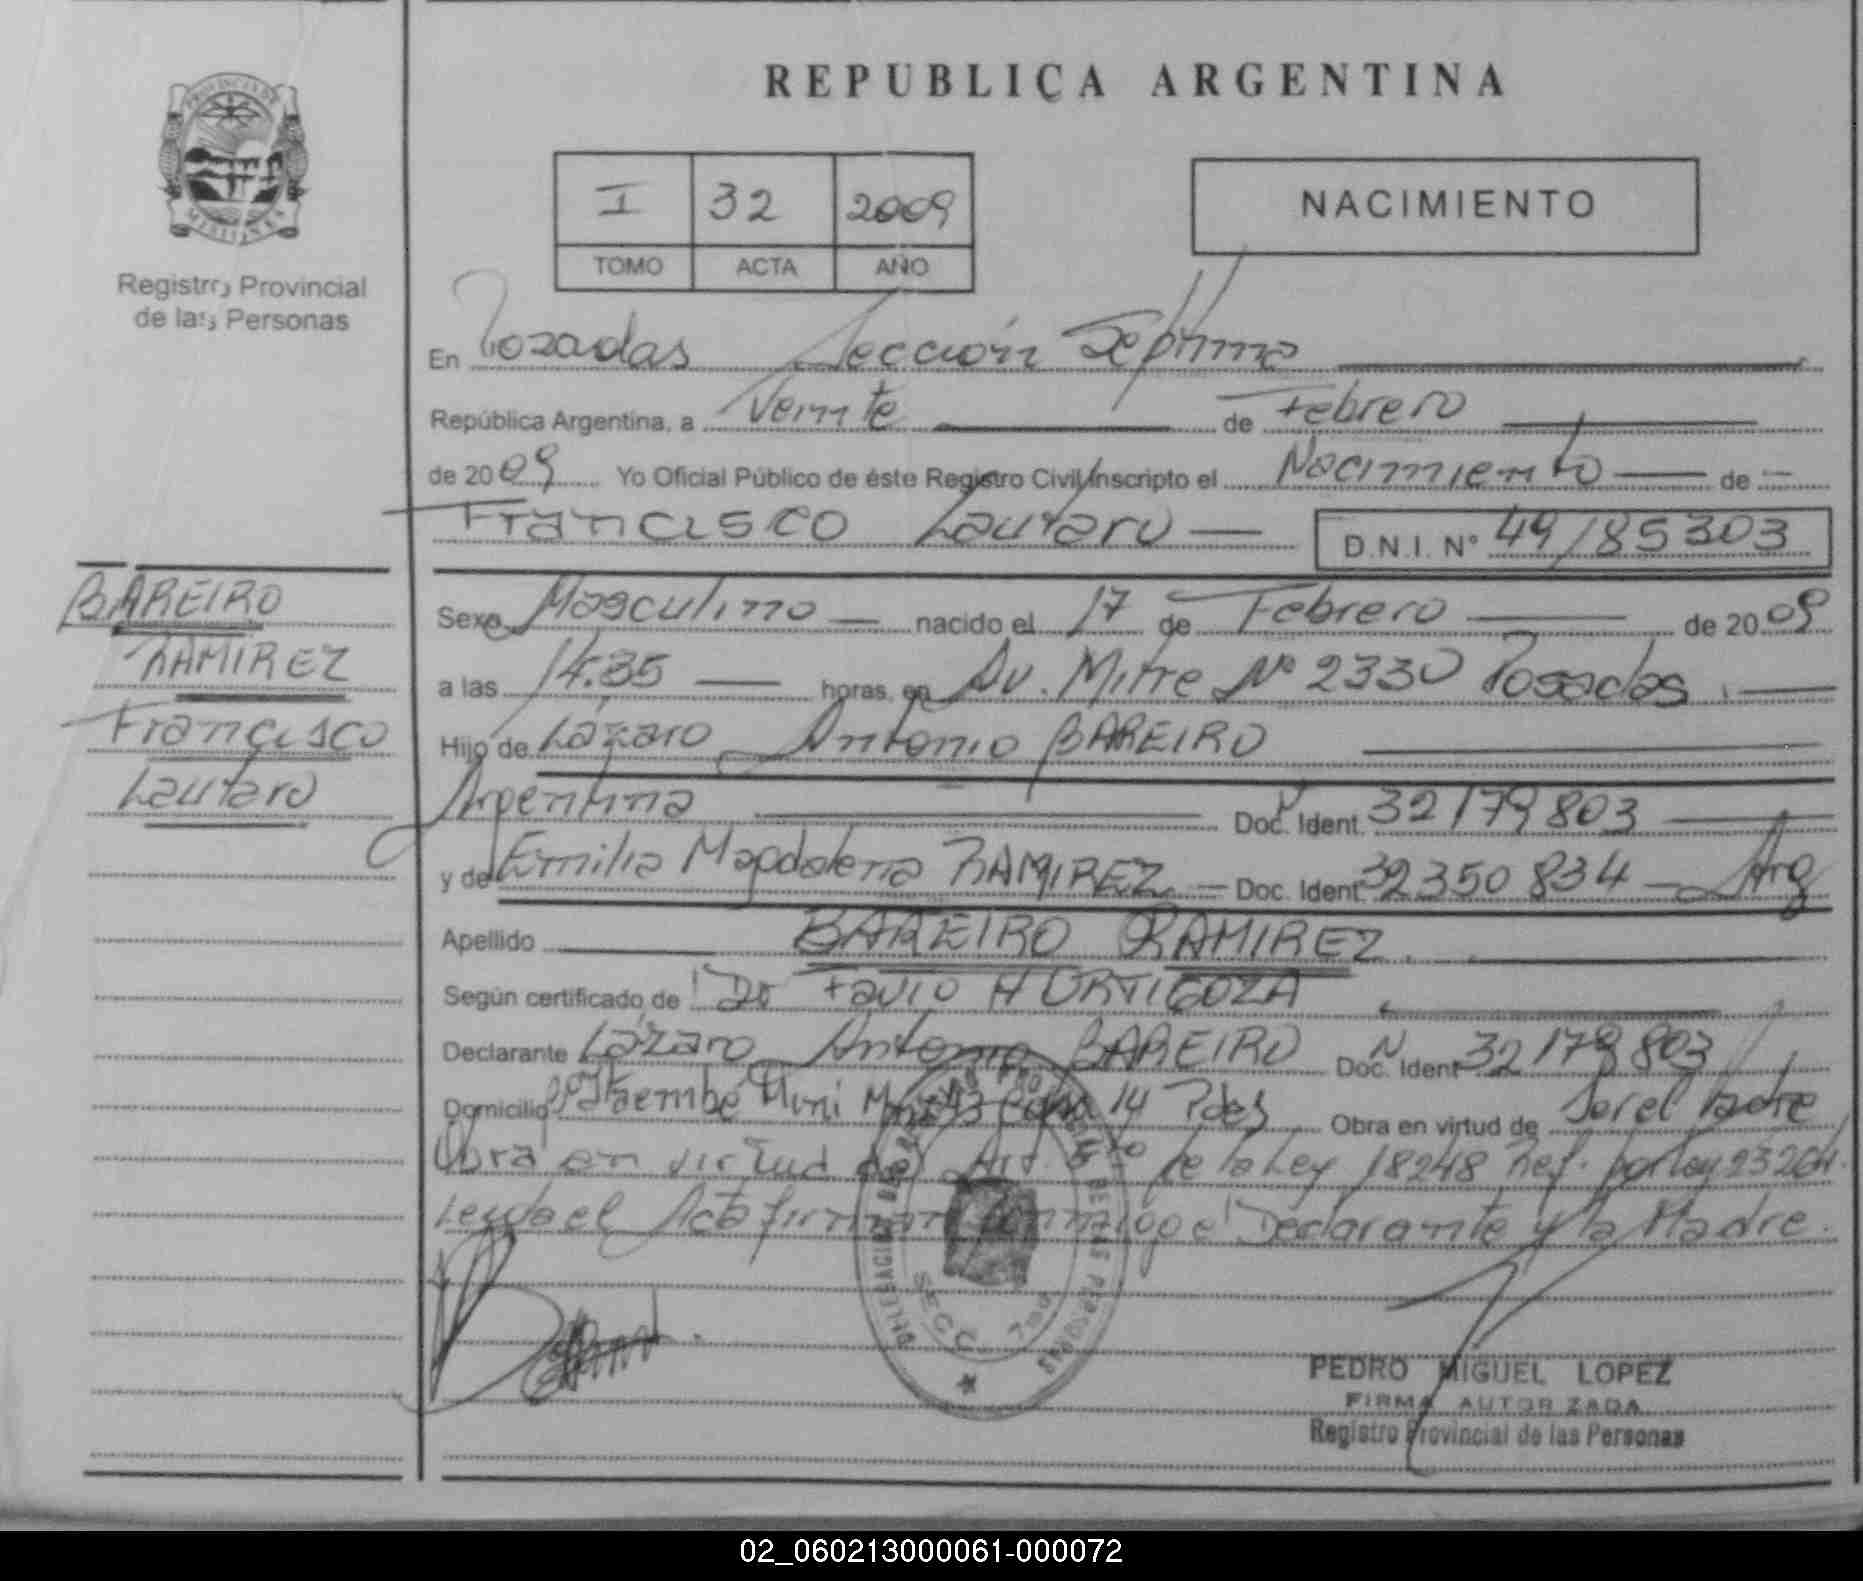 REPUBLICA ARGENTINA
I 32 2009
TOMO ACTA AÑO
NACIMIENTO
PROVINCIA DE
MISIONES
Registro Provincial
de las Personas
En Posadas Sección Séptima
República Argentina, a Veinte de Febrero
de 2009 Yo Oficial Público de éste Registro Civil Inscripto el Nacimiento de
Francisco Lautaro D.N.I. N° 49185303
BAREIRO
RAMIREZ
Francisco
Lautaro
Sexo Masculino nacido el 17 de Febrero de 2009
a las 14:35 horas, en Av. Mitre Nº 2330 Posadas.
Hijo de Lázaro Antonio BAREIRO
Argentina Doc. Ident. 32179803
y de Emilia Magdalena RAMIREZ Doc. Ident. 32350834 Arg
Apellido BAREIRO RAMIREZ.
Según certificado de Dr Favio HORTIGOZA
Declarante Lázaro Antonio BAREIRO Doc. Ident 32179803
Domicilio Itaembé Mini 14 Pdas Obra en virtud de Ser el Padre
Obra en virtud del Art. 5to de la Ley 18248 Ref. por Ley 23264.
Leyda el Acta firman conmigo el Declarante y la Madre.
DELEGACION DE LAS PERSONAS
SECC. 7ma
PEDRO MIGUEL LOPEZ
FIRMA AUTORIZADA
Registro Provincial de las Personas
02_060213000061-000072